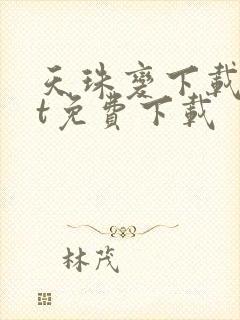 天珠變下載
t免費下載
林茂